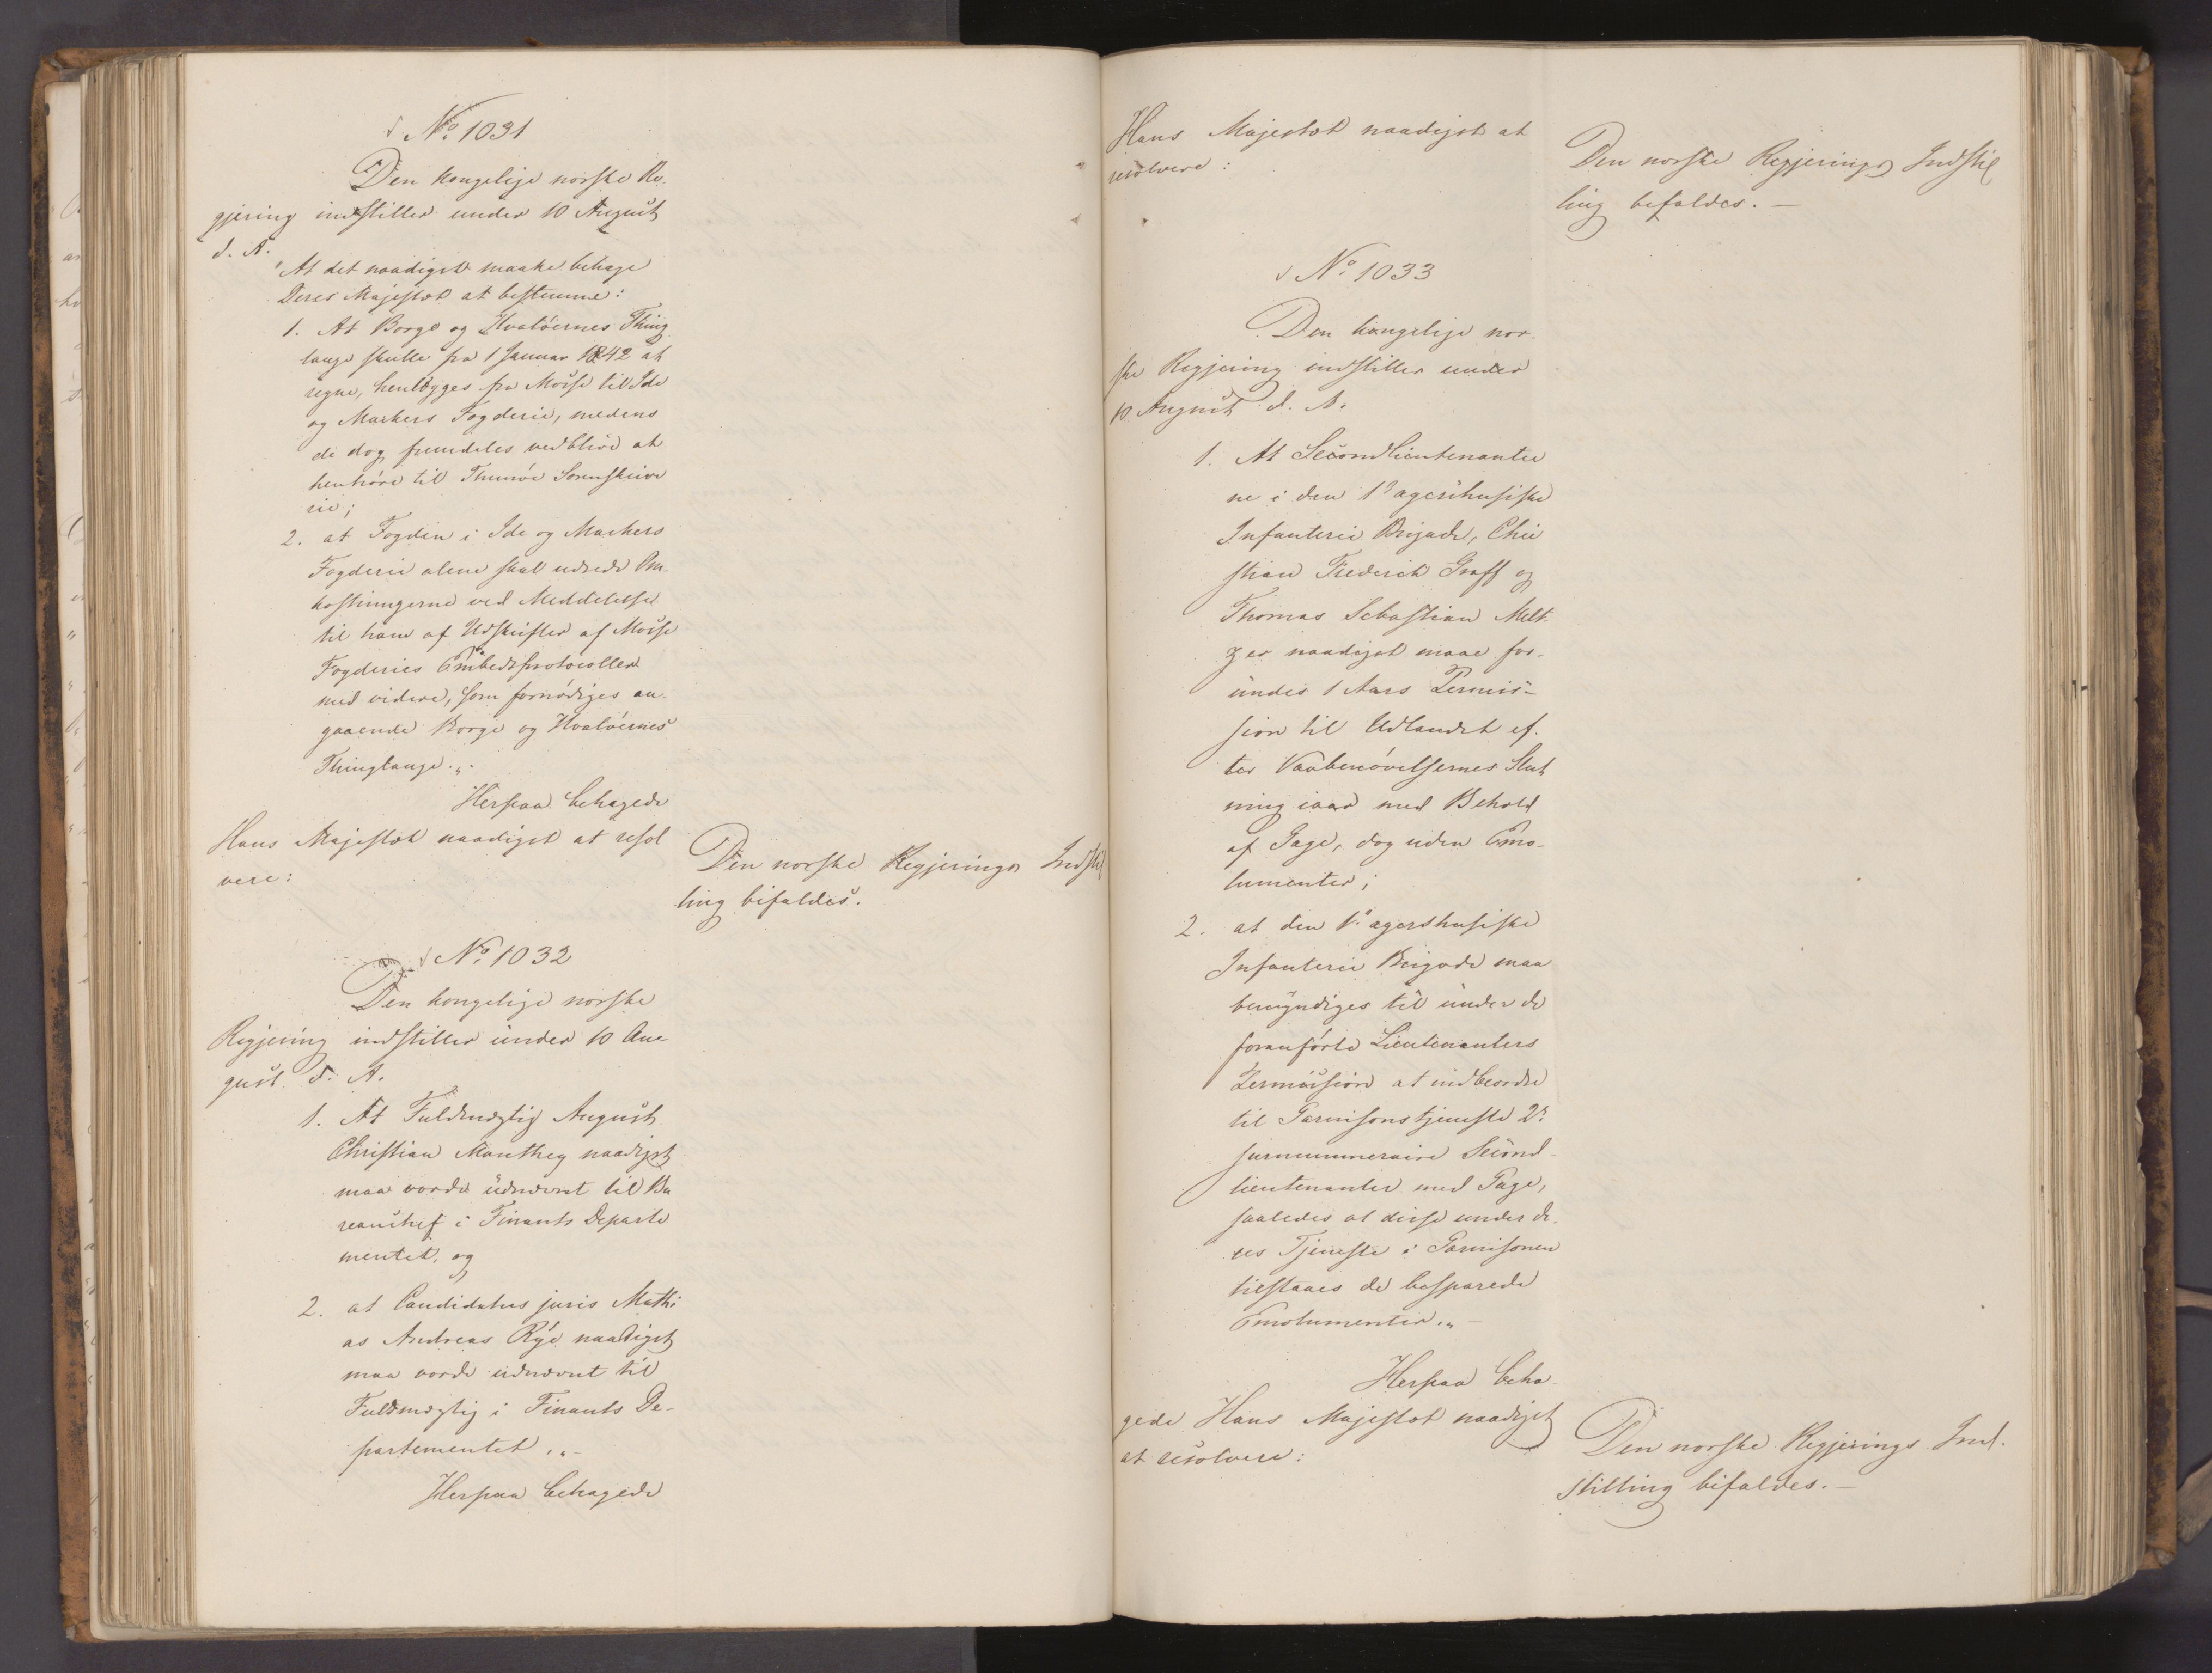 No 1031
Den kongelige norske Re-
gjering indstiller under 10 August
d. A.
"At det naadigst maatte behage
Deres Majestæt at bestemme:
1. At Borge og Hvaløernes Thing
lauge skulle fra 1 Januar 1842 at
regne, henlægges fra Mosse til Ide
og Markers Fogderie, medens
de dog fremdeles vedblive at
henhøre til Thunøe Sorenskrive
rie;
2. at Fogden i Ide og Markers
Fogderie alene skal udrede Om-
kostningerne ved Meddelelse
til ham af Udskrifter af Mosse
Fogderies Embedsprotocoller
med videre, som fornødiges an-
gaaende Borge og Hvaløernes
Thinglauge.„.
Herpaa behagede
Hans Majestæt naadigst at resol
vere:
Den norske Regjerings Indstil
ling bifaldes.
No 1032
Den kongelige norske
Regjering indstiller under 10 Au-
gust d. A.
1. At Fuldmægtig August
Christian Manthey naadigst
maa vorde udnævnt til Bu
reauchef i Finants Departe
mentet, og
2. at Candidatus juris Mathi
as Andreas Rye naadigst
maa vorde udnævnt til
Fuldmægtig i Finants De-
partementet.„-
Herpaa behagede
Hans Majestæt naadigst at
resolvere:
Den norske Regjerings Indstil
ling bifaldes. —
No 1033
Den kongelige nor-
ske Regjering indstiller under
10 August d. A.
1. At Secondlieutenanter
ne i den 1e agershusiske
Infanterie Brigade, Chri
stian Frederik Graff og
Thomas Sebastian Melt-
zer naadigst maae for-
undes 1 Aars Permis-
sion til Udlandet ef-
ter Vaabenøvelsernes Slut
ning iaar med Behold
af Gage, dog uden Emo-
lumenter;
2. at den 1e agershusiske
Infanterie Brigade maa
bemyndiges til under de
foranførte Lieutenanters
Permission at indbeordre
til Garnisonstjeneste 2de
surnummeraire Second-
lieutenanter med Gage,
saaledes at disse under de-
res Tjeneste i Garnisonen
tilstaaes de besparede
Emolumenter.„ —
Herpaa beha-
gede Hans Majestæt naadigst
at resolvere:
Den norske Regjerings Ind-
stilling bifaldes. —